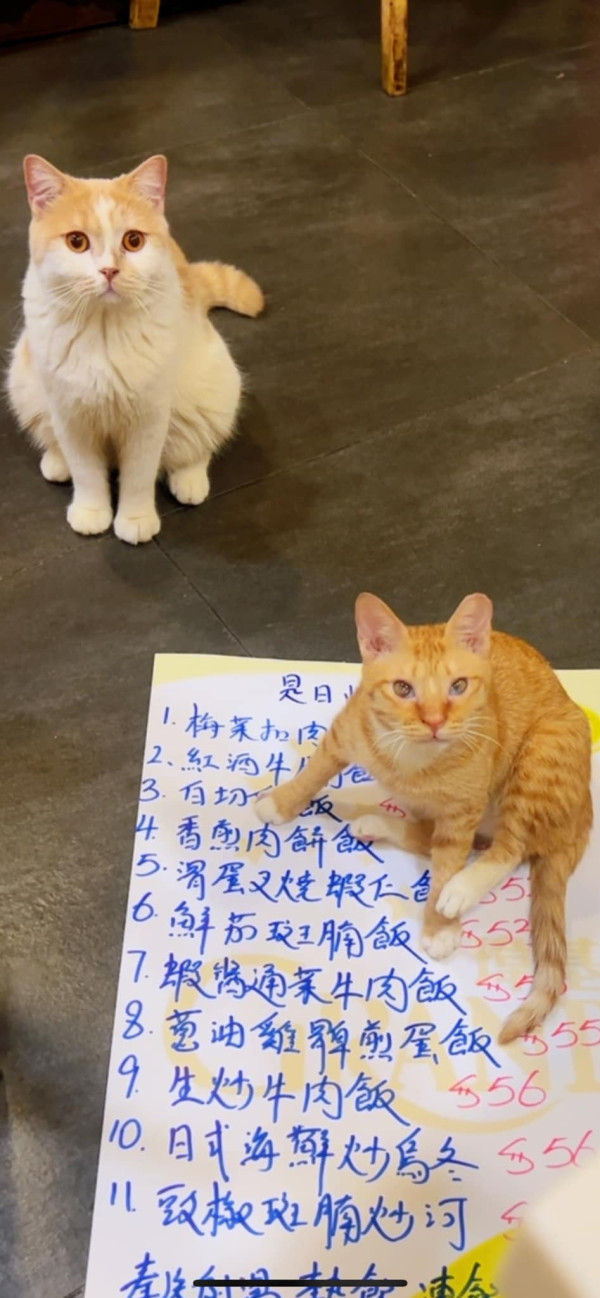 是日
1. 梅菜扣肉
2. 紅酒牛
3. 白切 飯
4. 香煎肉餅飯
5. 滑蛋叉燒蝦仁
6. 鮮茄斑腩飯 52
7. 蝦醬通菜牛肉飯
8. 葱油雞髀煎蛋飯 55
9. 生炒牛肉飯 56
10. 日式海鮮炒烏冬 56
11. 豉椒斑腩炒河
熱飲